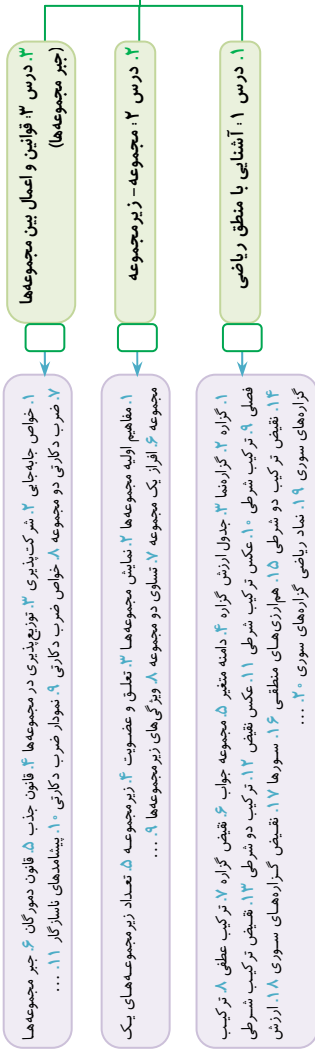 ۱. درس ۱: آشنایی با منطق ریاضی
۱. گزاره ۲. گزاره‌نما ۳. جدول ارزش گزاره ۴. دامنه متغیر ۵. مجموعه جواب ۶. نقیض گزاره ۷. ترکیب عطفی ۸. ترکیب
فصلی ۹. ترکیب شرطی ۱۰. عکس ترکیب شرطی ۱۱. عکس نقیض ۱۲. ترکیب دو شرطی ۱۳. نقیض ترکیب شرطی
۱۴. نقیض ترکیب دو شرطی ۱۵. هم‌ارزی‌های منطقی ۱۶. سورها ۱۷. نقیض گزاره‌های سوری ۱۸. ارزش
گزاره‌های سوری ۱۹. نماد ریاضی گزاره‌های سوری ۲۰. ...
۲. درس ۲: مجموعه - زیرمجموعه
۱. مفاهیم اولیه مجموعه‌ها ۲. نمایش مجموعه‌ها ۳. تعلق و عضویت ۴. زیرمجموعه ۵. تعداد زیرمجموعه‌های یک
مجموعه ۶. افراز یک مجموعه ۷. تساوی دو مجموعه ۸. ویژگی‌های زیرمجموعه‌ها ۹. ...
۳. درس ۳: قوانین و اعمال بین مجموعه‌ها
(جبر مجموعه‌ها)
۱. خواص جابه‌جایی ۲. شرکت‌پذیری ۳. توزیع‌پذیری در مجموعه‌ها ۴. قانون جذب ۵. قانون دمورگان ۶. جبر مجموعه‌ها
۷. ضرب دکارتی دو مجموعه ۸. خواص ضرب دکارتی ۹. نمودار ضرب دکارتی ۱۰. پیشامدهای ناسازگار ۱۱. ...